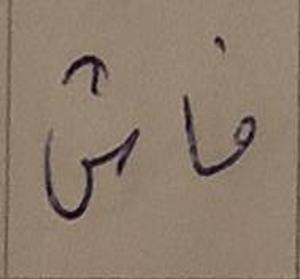 فاش